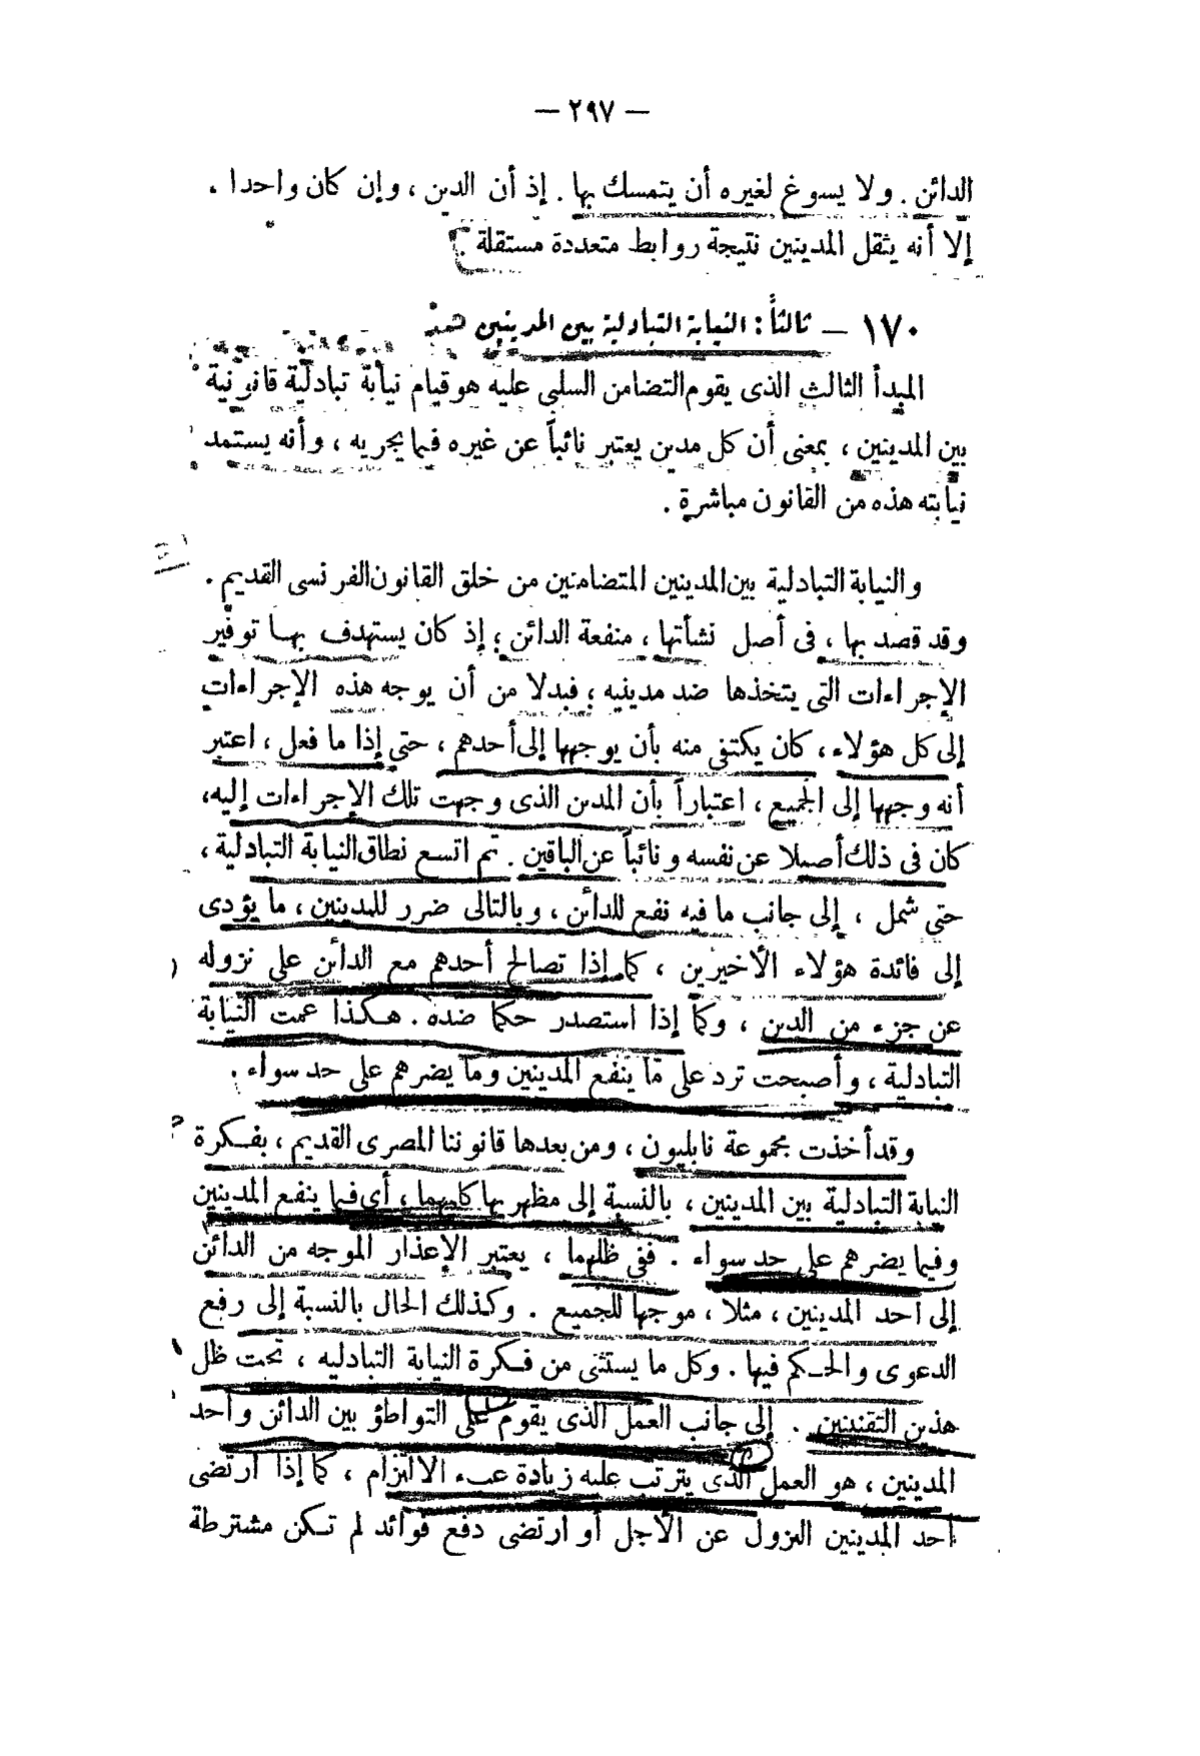 — ٢٩٧ —
الدائن . ولا يسوغ لغيره أن يتمسك بها . إذ أن الدين ، وإن كان واحدا ،
إلا أنه يثقل المدينين نتيجة روابط متعددة مستقلة .
١٧٠ — ثالثاً : النيابة التبادلية بين المدينين
المبدأ الثالث الذى يقوم التضامن السلبى عليه هو قيام نيابة تبادلية قانونية
بين المدينين ، بمعنى أن كل مدين يعتبر نائباً عن غيره فيما يجريه ، وأنه يستمد
نيابته هذه من القانون مباشرة .
والنيابة التبادلية بين المدينين المتضامنين من خلق القانون الفرنسى القديم .
وقد قصد بها ، فى أصل نشأتها ، منفعة الدائن ؛ إذ كان يستهدف بها توفير
الإجراءات التى يتخذها ضد مدينيه ؛ فبدلا من أن يوجه هذه الإجراءات
إلى كل هؤلاء ، كان يكتفى منه بأن يوجهها إلى أحدهم ، حتى إذا ما فعل ، اعتبر
أنه وجهها إلى الجميع ، اعتباراً بأن المدين الذى وجهت تلك الإجراءات إليه ،
كان فى ذلك أصيلا عن نفسه ونائباً عن الباقين . ثم اتسع نطاق النيابة التبادلية ،
حتى شمل ، إلى جانب ما فيه نفع للدائن ، وبالتالى ضرر للمدينين ، ما يؤدى
إلى فائدة هؤلاء الأخيرين ، كما إذا تصالح أحدهم مع الدائن على نزوله
عن جزء من الدين ، وكما إذا استصدر حكما ضده . هكذا عمت النيابة
التبادلية ، وأصبحت ترد على ما ينفع المدينين وما يضرهم على حد سواء .
وقد أخذت مجموعة نابليون ، ومن بعدها قانوننا المصرى القديم ، بفكرة
النيابة التبادلية بين المدينين ، بالنسبة إلى مظهريها كليهما ، أى فيما ينفع المدينين
وفيما يضرهم على حد سواء . ففى ظلهما ، يعتبر الإعذار الموجه من الدائن
إلى أحد المدينين ، مثلا ، موجها للجميع . وكذلك الحال بالنسبة إلى رفع
الدعوى والحكم فيها . وكل ما يستثنى من فكرة النيابة التبادليه ، تحت ظل
هذين التقنينين . إلى جانب العمل الذى يقوم على التواطؤ بين الدائن وأحد
المدينين ، هو العمل الذى يترتب عليه زيادة عبء الالتزام ، كما إذا ارتضى
أحد المدينين النزول عن الأجل أو ارتضى دفع فوائد لم تكن مشترطة